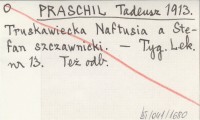 PRASCHIL Tadeusz 1913.
Truskawiecka Naftusia a Ste-
fan szczawnicki. — Tyg. Lek.
nr 13. Też odb.